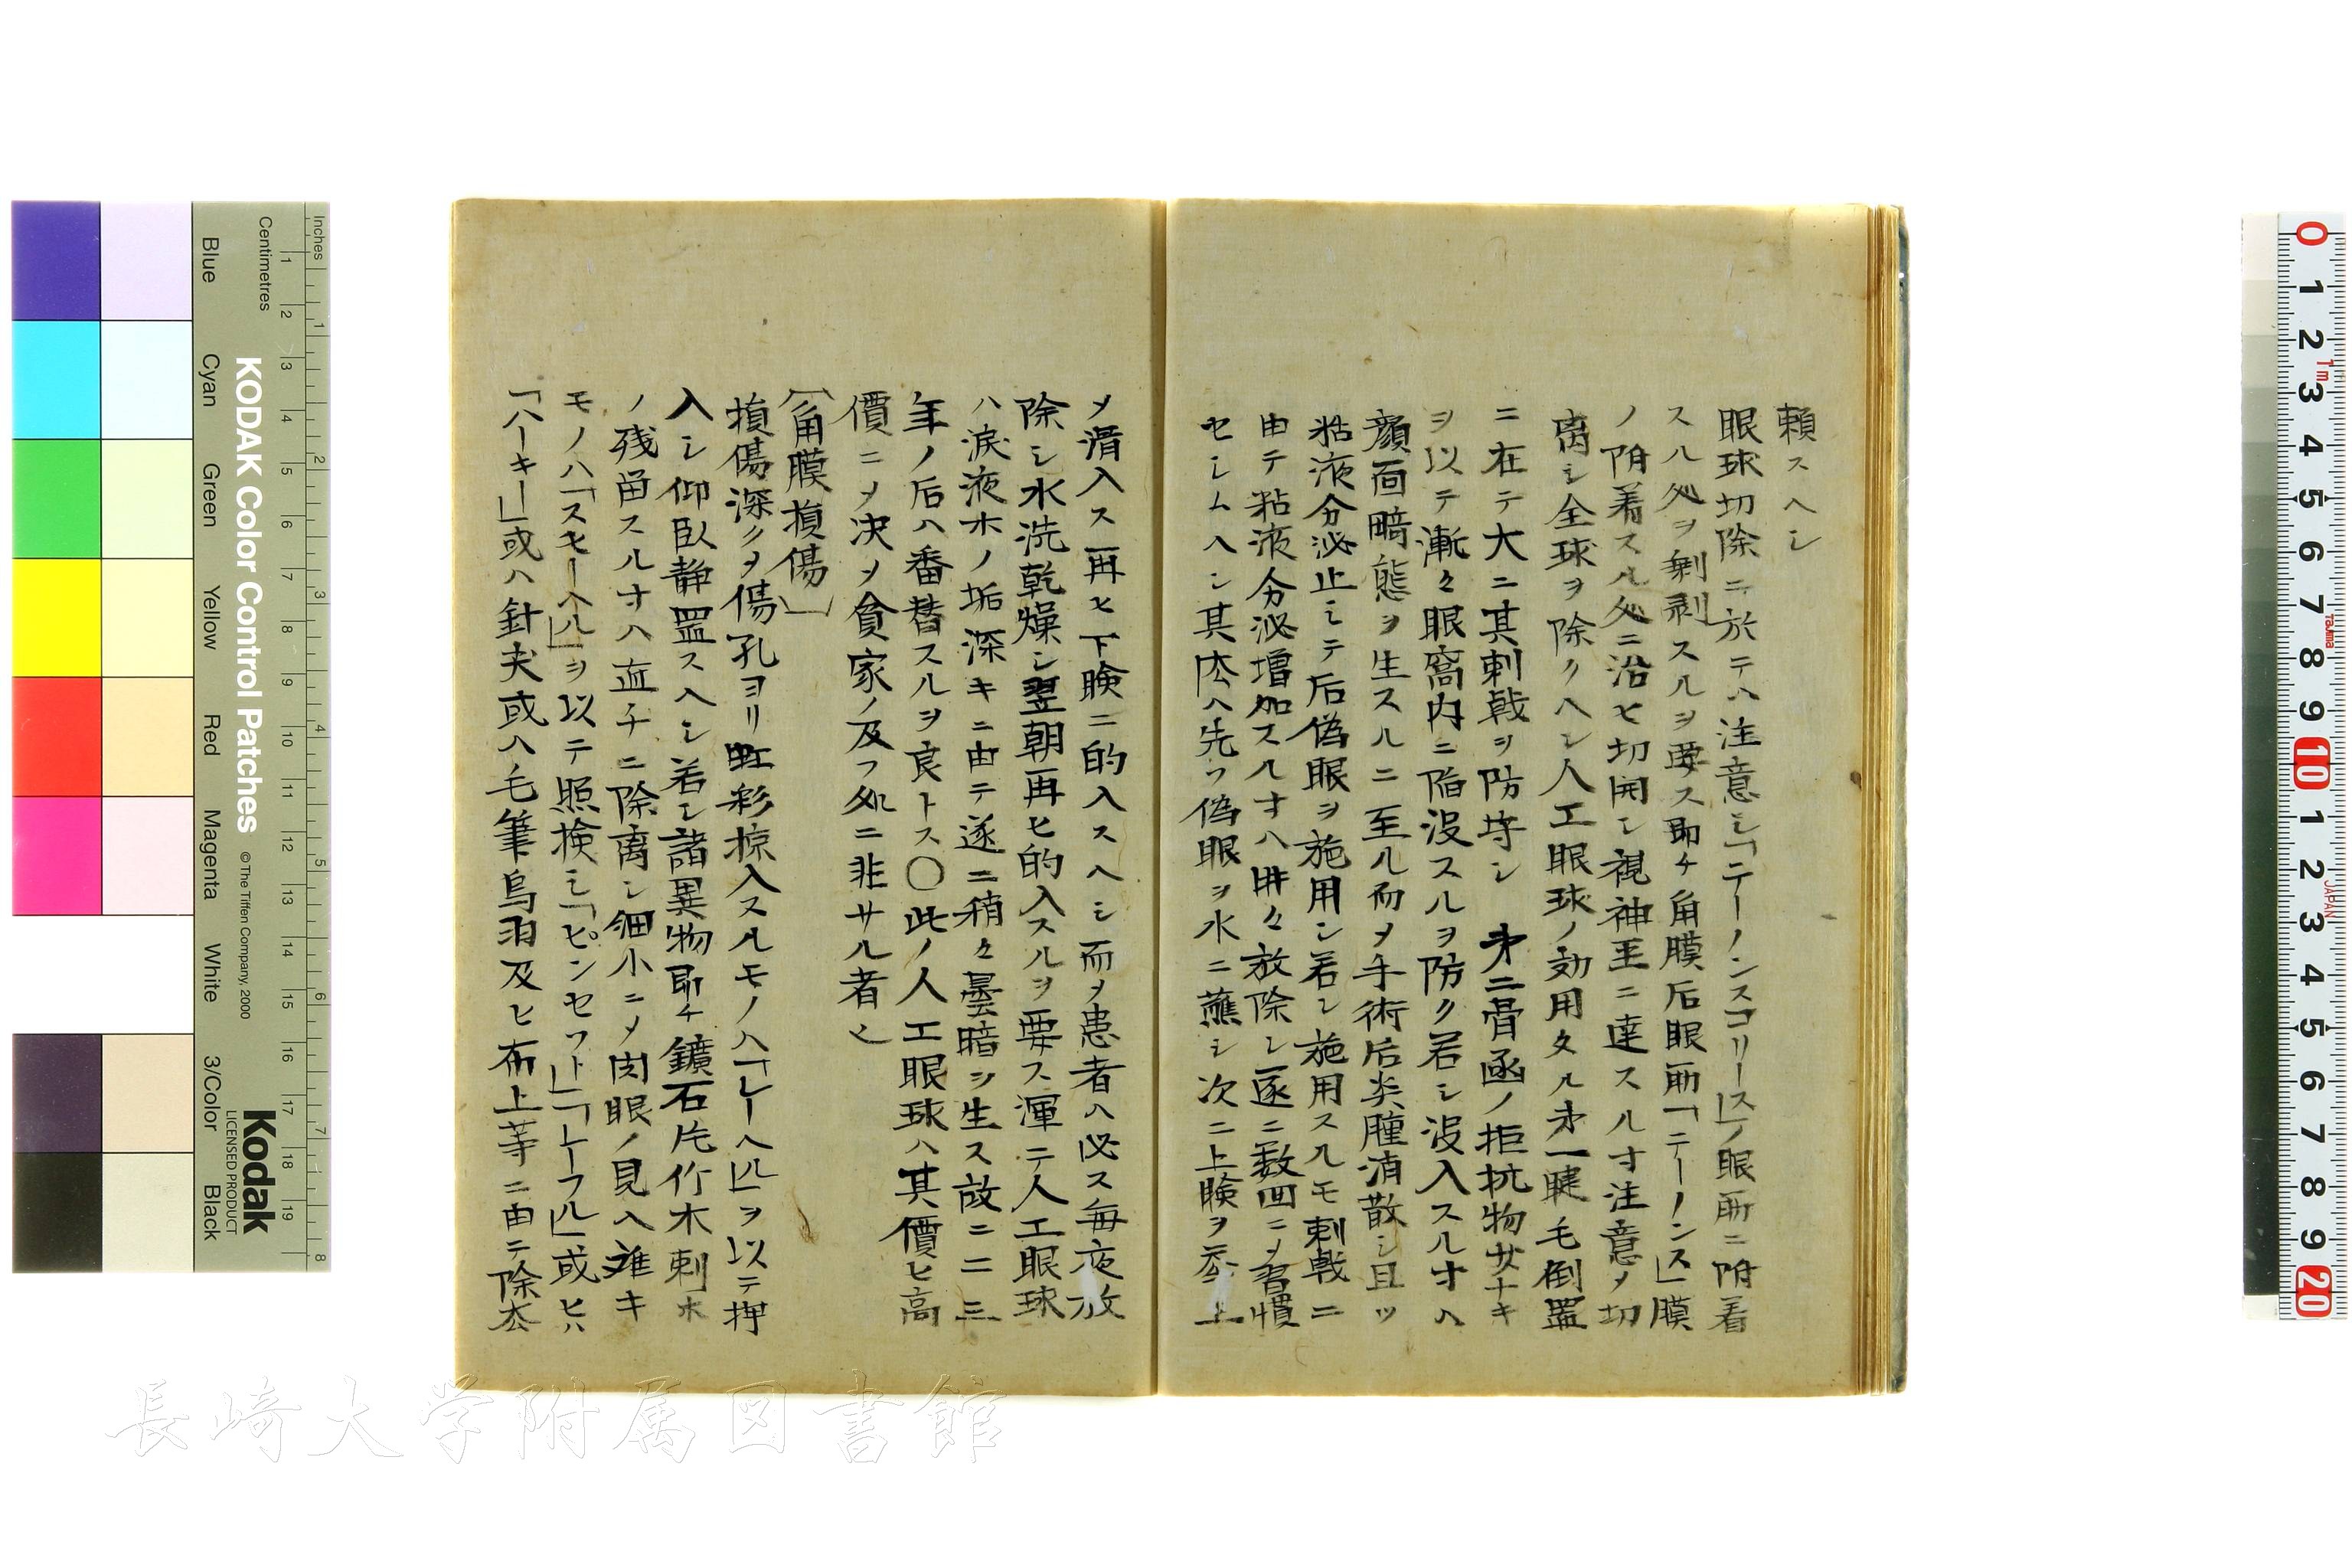 頼スヘシ
眼球切除ニ於テハ注意シ「テーノンスコリース」ノ眼所ニ附着
スル処ヲ剝剥スルヲ要ス即チ角膜后眼所「テーノンス」膜
ノ附着スル処ニ沿ヒ切開シ視神圣ニ達スル寸注意メ切
离シ全球ヲ除クヘシ人工眼球ノ効用タル㐧一睫毛倒置
ニ在テ大ニ其刺戟ヲ防守シ㐧二骨函ノ拒抗物サナキ
ヲ以テ漸々眼窩内ニ陥没スルヲ防ク若シ没入スル寸ハ
顔面畸態ヲ生スルニ至ル而メ手術后炎腫消散シ且ツ
粘液分泌止ミテ后偽眼ヲ施用シ若シ施用スルモ刺戟ニ
由テ粘液分泌増加スル寸ハ時々放除シ遂ニ数回ニメ習慣
セシムヘシ其法ハ先ツ偽眼ヲ水ニ蘸シ次ニ上瞼ヲ上
メ滑入ス再ヒ下瞼ニ的入スヘシ而メ患者ハ必ス毎夜放
除シ水洗乾燥シ翌朝再ヒ的入スルヲ要ス渾テ人工眼球
ハ涙液ホノ垢深キニ由テ遂ニ稍々曇暗ヲ生ス故ニ二三
年ノ后ハ番替スルヲ良トス〇此ノ人工眼球ハ其價ヒ高
價ニメ决メ貧家ノ及フ処ニ非サル者也
「角膜損傷」
損傷深クメ傷孔ヨリ虹彩掠入スルモノハ「レーヘル」ヲ以テ押
入シ仰臥静置スヘシ若シ諸異物即チ鑛石片竹木刺ホ
ノ残畄スル寸ハ直チニ除离シ細小ニメ肉眼ノ見ヘ难キ
モノハ「スキーヘル」ヲ以テ照検シ「ピンセット」「レーフル」或ヒハ
「ハーキー」或ハ針尖或ハ毛筆鳥羽及ヒ布上等ニ由テ除去
長崎大学附属図書館
KODAK Color Control Patches
© The Tiffen Company, 2000
Kodak
LICENSED PRODUCT
Inches
Centimetres
Blue
Cyan
Green
Yellow
Red
Magenta
White
3/Color
Black
JAPAN